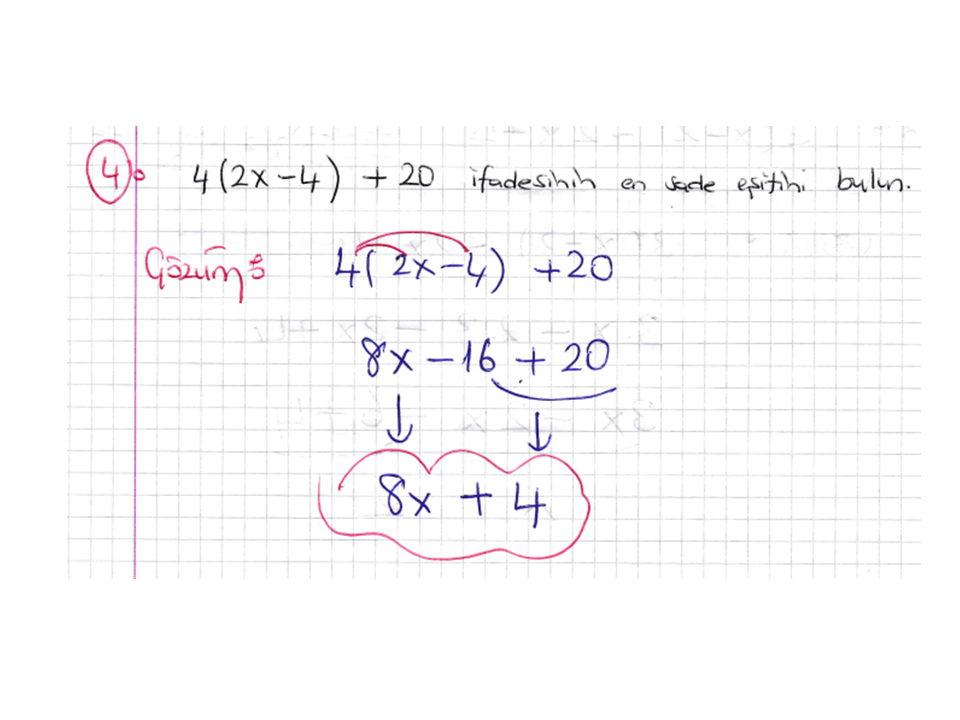 4) 4(2x-4) + 20 ifadesinin en sade eşitini bulun.
Çözüm: 4(2x-4) +20
8x - 16 + 20
↓ ↓
8x + 4